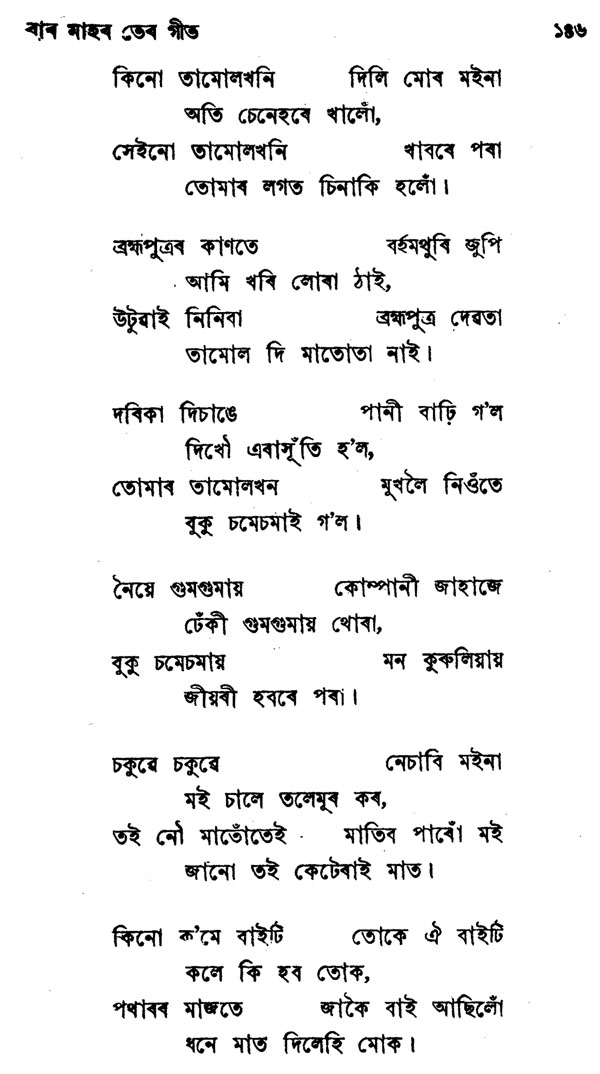 বাৰ মাহৰ তেৰ গীত ১৪৬
কিনো তামোলখনি দিলি মোৰ মইনা
অতি চেনেহৰে খালোঁ,
সেইনো তামোলখনি খাবৰে পৰা
তোমাৰ লগত চিনাকি হলোঁ।
ব্ৰহ্মপুত্ৰৰ কাণতে বৰ্হমথুৰি জুপি
আমি খৰি লোৰা ঠাই,
উটুৱাই নিনিবা ব্ৰহ্মপুত্ৰ দেৱতা
তামোল দি মাতোতা নাই।
দৰিকা দিচাঙে পানী বাঢ়ি গ'ল
দিখৌ এৰাসূঁতি হ'ল,
তোমাৰ তামোলখন মুখলৈ নিওঁতে
বুকু চমেচমাই গ'ল।
নৈয়ে গুমগুমায় কোম্পানী জাহাজে
ঢেঁকী গুমগুমায় থোৰা,
বুকু চমেচমায় মন কুৰুলিয়ায়
জীয়ৰী হবৰে পৰা।
চকুৱে চকুৱে নেচাবি মইনা
মই চালে তলেমূৰ কৰ,
তই নৌ মাতোঁতেই মাতিব পাৰোঁ মই
জানো তই কেটেৰাই মাত।
কিনো ক'মে বাইটি তোকে ঐ বাইটি
কলে কি হব তোক,
পথাৰৰ মাজতে জাকৈ বাই আছিলোঁ
ধনে মাত দিলেহি মোক।